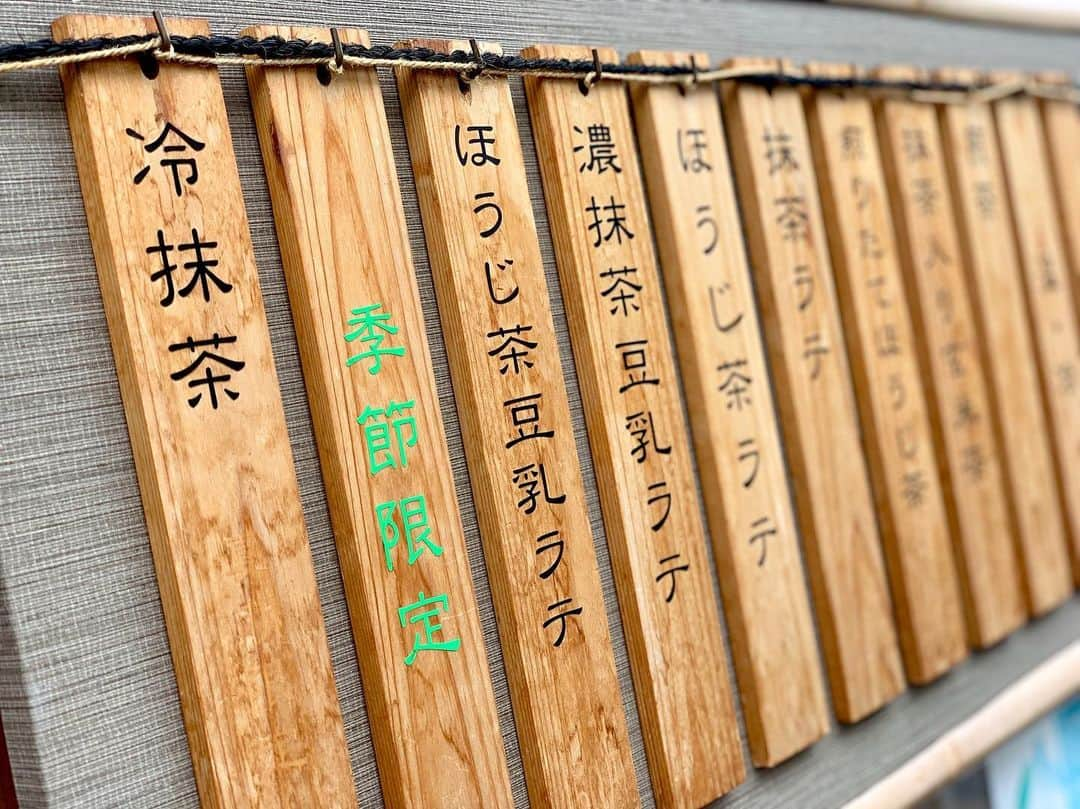 煎茶
抹茶入り玄米茶
煎りたてほうじ茶
抹茶ラテ
ほうじ茶ラテ
濃抹茶豆乳ラテ
ほうじ茶豆乳ラテ
季節限定
冷抹茶